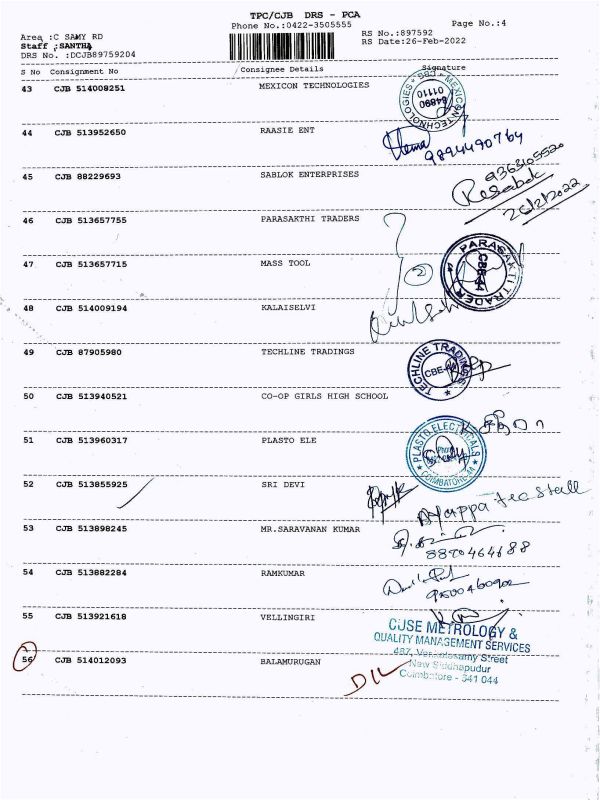 TPC/CJB DRS - PCA
Phone No.:0422-3505555
Page No.:4
Area :C SAMY RD
RS No.:897592
Staff :SANTHA
RS Date:26-Feb-2022
DRS No. :DCJB89759204
S No Consignment No Consignee Details Signature
43 CJB 514008251 MEXICON TECHNOLOGIES
MEXICAN TECHNOLOGIES
44 CJB 513952650 RAASIE ENT
Hema
9894490764
45 CJB 88229693 SABLOK ENTERPRISES
9363105520
26/2/2022
46 CJB 513657755 PARASAKTHI TRADERS
PARASAKTI TRADER
47 CJB 513657715 MASS TOOL
2
48 CJB 514009194 KALAISELVI
49 CJB 87905980 TECHLINE TRADINGS
TECHLINE TRADINGS
50 CJB 513940521 CO-OP GIRLS HIGH SCHOOL
51 CJB 513960317 PLASTO ELE
PLASTO ELECTRICALS
COIMBATORE-44
52 CJB 513855925 SRI DEVI
Ayappa tea Stall
53 CJB 513898245 MR.SARAVANAN KUMAR
54 CJB 513882284 RAMKUMAR
55 CJB 513921618 VELLINGIRI
METROLOGY &
QUALITY MANAGEMENT SERVICES
56 CJB 514012093 BALAMURUGAN
New Siddhapudur
Coimbatore - 641 044
D/L